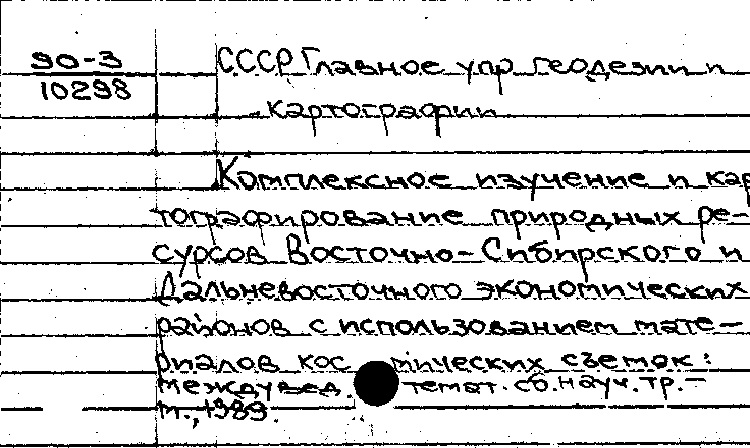 90-3
10298
СССР Главное упр. геодезии и
картографии
Комплексное изучение и кар
тографирование природных ре-
сурсов Восточно-Сибирского и
Дальневосточного экономических
районов с использованием мате-
риалов кос мических съемок:
междувед. темат. сб. науч. тр. –
М., 1989.